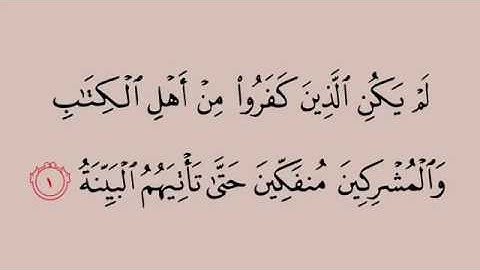 لَمْ يَكُنِ ٱلَّذِينَ كَفَرُوا۟ مِنْ أَهْلِ ٱلْكِتَـٰبِ
وَٱلْمُشْرِكِينَ مُنفَكِّينَ حَتَّىٰ تَأْتِيَهُمُ ٱلْبَيِّنَةُ ١